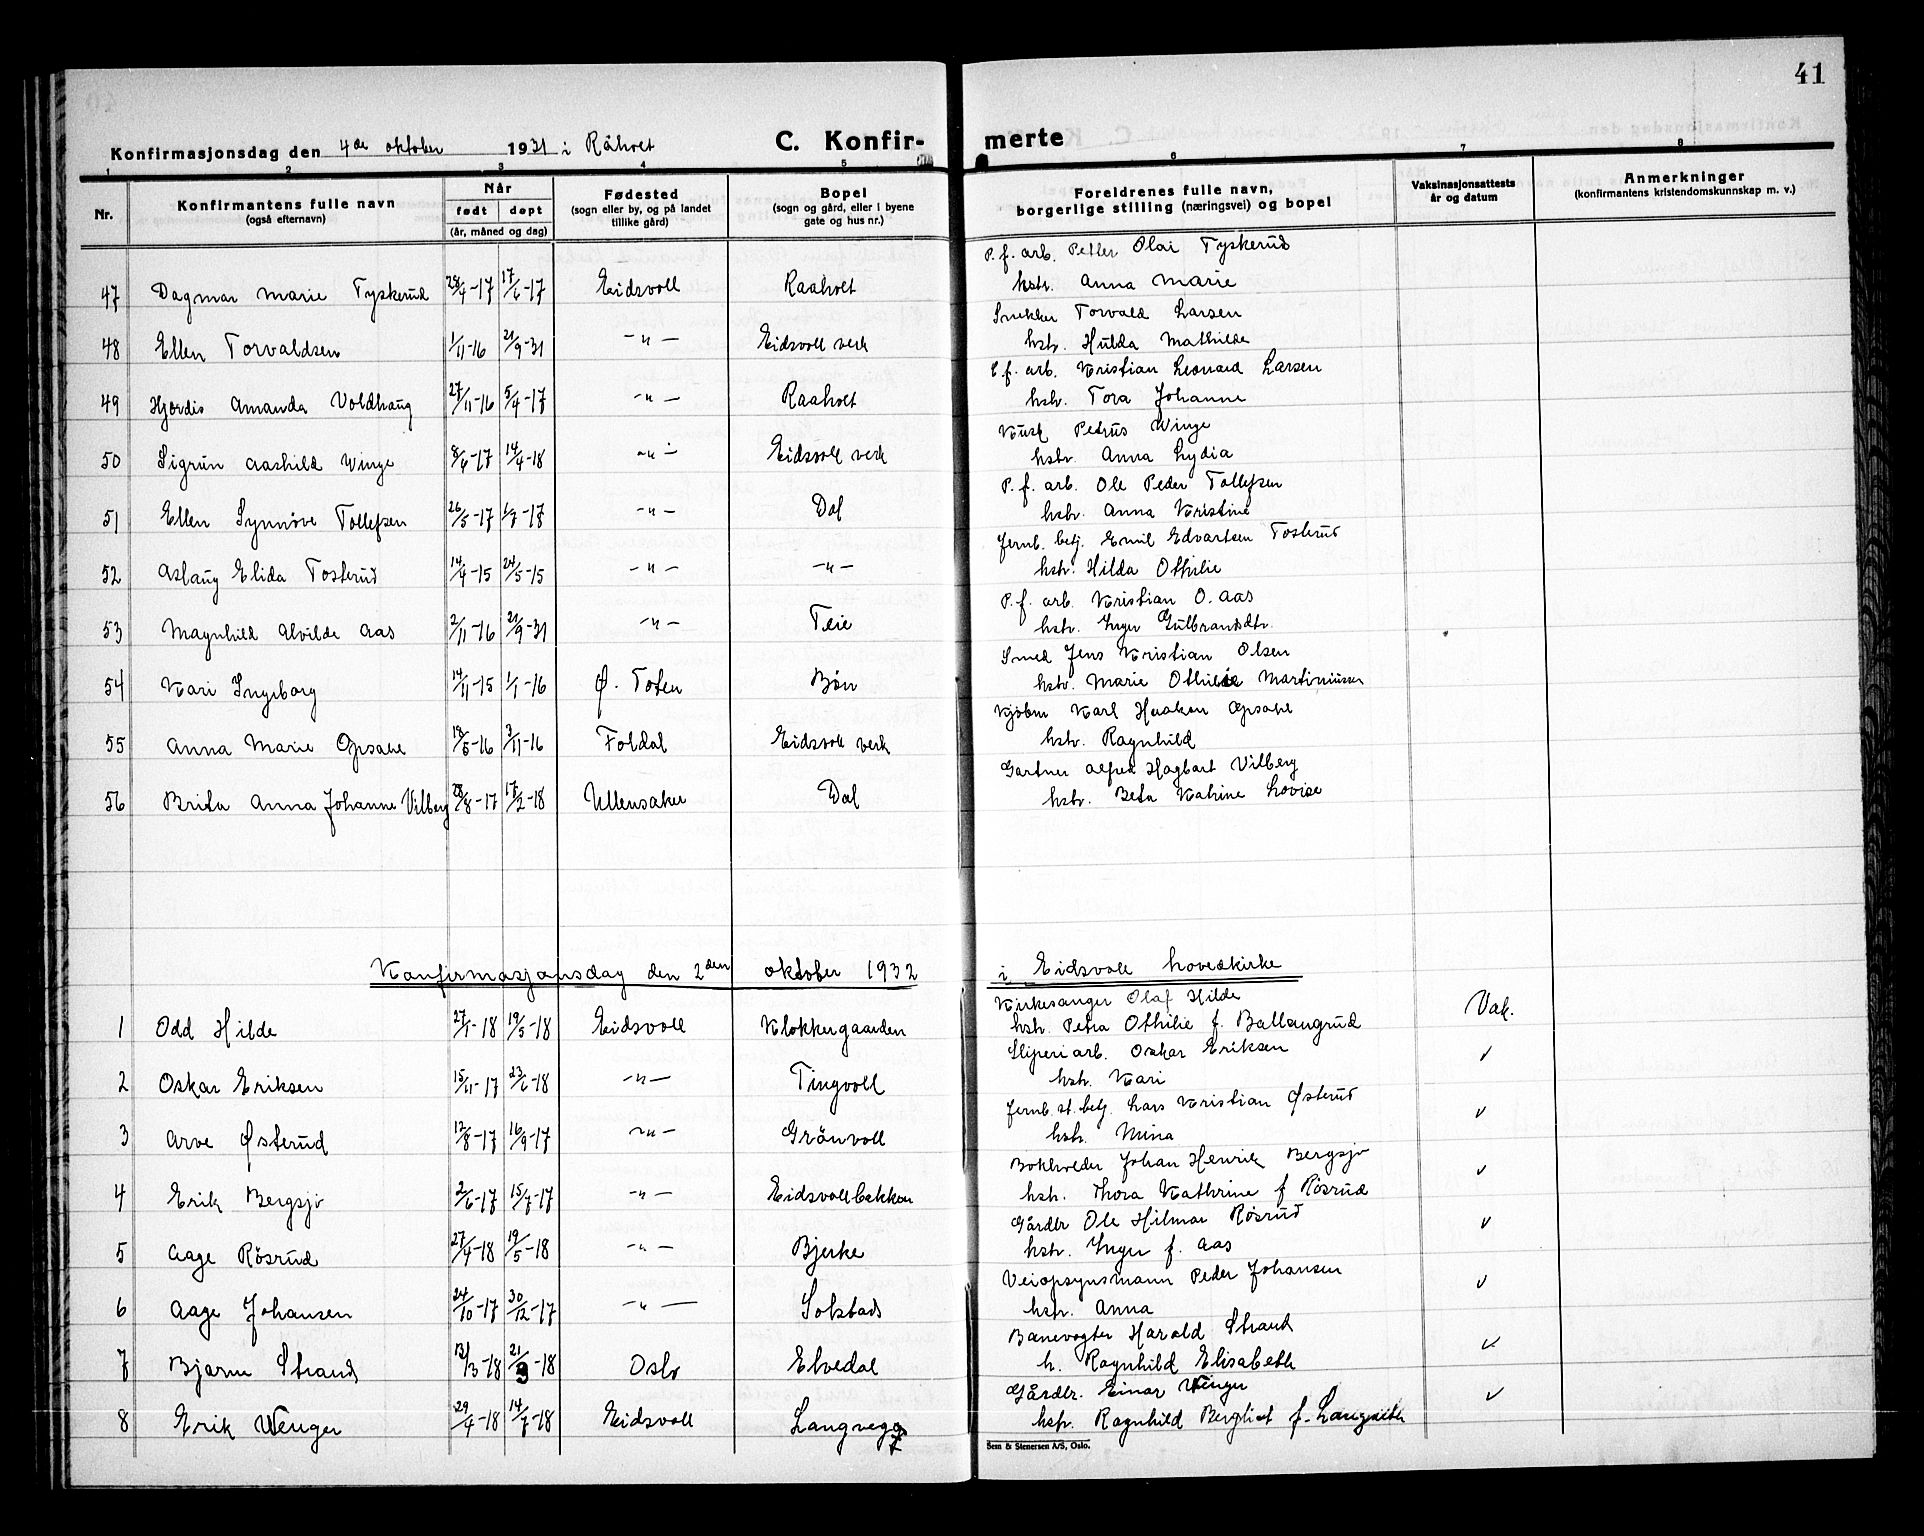 41
Konfirmasjonsdag den 4de oktober 1931 i Råholt
C. Konfir- merte
1 2 3 4 5 6 7 8
Nr. Konfirmantens fulle navn (også efternavn) Når født døpt (år, måned og dag) Fødested (sogn eller by, og på landet tillike gård) Bopel (sogn og gård, eller i byene gate og hus nr.) Foreldrenes fulle navn, borgerlige stilling (næringsvei) og bopel Vaksinasjonsattests år og datum Anmerkninger (konfirmantens kristendomskunnskap m. v.)
P. f. arb. Petter Olai Tyskerud
47 Dagmar Marie Tyskerud 28/4-17 17/6-17 Eidsvoll Raaholt hstr. Anna Marie
Snekker Torvald Larsen
48 Ellen Torvaldsen 1/11-16 21/9-31 -"- Eidsvoll verk hstr. Hulda Mathilde
C. f. arb. Kristian Leonard Larsen
49 Hjørdis Amanda Voldhaug 27/11-16 5/4-17 -"- Raaholt hstr. Tora Johanne
Kusk Petrus Winge
50 Sigrun Aashild Winge 8/6-17 14/4-18 -"- Eidsvoll verk hstr. Anna Lydia
P. f. arb. Ole Peder Tollefsen
51 Ellen Synnøve Tollefsen 26/5-17 1/7-17 -"- Dal hstr. Anna Kristine
Jernb. betj. Emil Edvartsen Tosterud
52 Aslaug Elida Tosterud 14/4-15 24/5-15 -"- -"- hstr. Hilda Othilie
P. f. arb. Kristian O. Aas
53 Magnhild Alvilde Aas 2/11-16 21/9-31 -"- Teie hstr. Inger Gulbrandsdtr.
Smed Jens Kristian Olsen
54 Kari Ingeborg 14/11-15 1/1-16 Ø. Toten Bøn hstr. Marie Othilie Martiniussen
Kjøbm Karl Haakon Opsahl
55 Anna Marie Opsahl 18/5-16 3/11-16 Foldal Eidsvoll verk hstr. Ragnhild
Gartner Alfred Hagbart Vilberg
56 Brita Anna Johanne Vilberg 28/8-17 17/2-18 Ullensaker Dal hstr. Beta Katrine Lovise
Konfirmasjonsdag den 2den oktober 1932 i Eidsvoll hovedkirke
Kirkesanger Olaf Hilde
1 Odd Hilde 27/1-18 19/5-18 Eidsvoll Klokkergaarden hstr. Petra Othilie f. Ballangrud Vak.
Sliperiarb. Oskar Eriksen
2 Oskar Eriksen 15/11-17 23/6-18 -"- Tingvoll hstr. Kari ✓
Jernb. st. betj. Lars Kristian Østerud
3 Arve Østerud 12/8-17 16/9-17 -"- Grönvoll hstr. Mina ✓
Bokholder Johan Henrik Bergsjø
4 Erik Bergsjø 2/6-17 15/7-17 -"- Eidsvollbakken hstr. Thora Kathrine f Røsrud ✓
Gårdbr Ole Hilmar Røsrud
5 Aage Røsrud 27/4-18 19/5-18 -"- Bjerke hstr. Inger f. Aas ✓
Veiopsynsmann Peder Johansen
6 Aage Johansen 24/10-17 30/12-17 -"- Solstad hstr. Anna ✓
Banevogter Harald Strand
7 Bjarne Strand 12/3-18 21/9-18 Oslo Elvedal h. Ragnhild Elisabeth ✓
Gårdbr. Einar Wenger
8 Erik Wenger 29/4-18 14/7-18 Eidsvoll Langvegg hstr. Ragnhild Bergliot f. Langseth ✓
Sem & Stenersen A/S, Oslo.